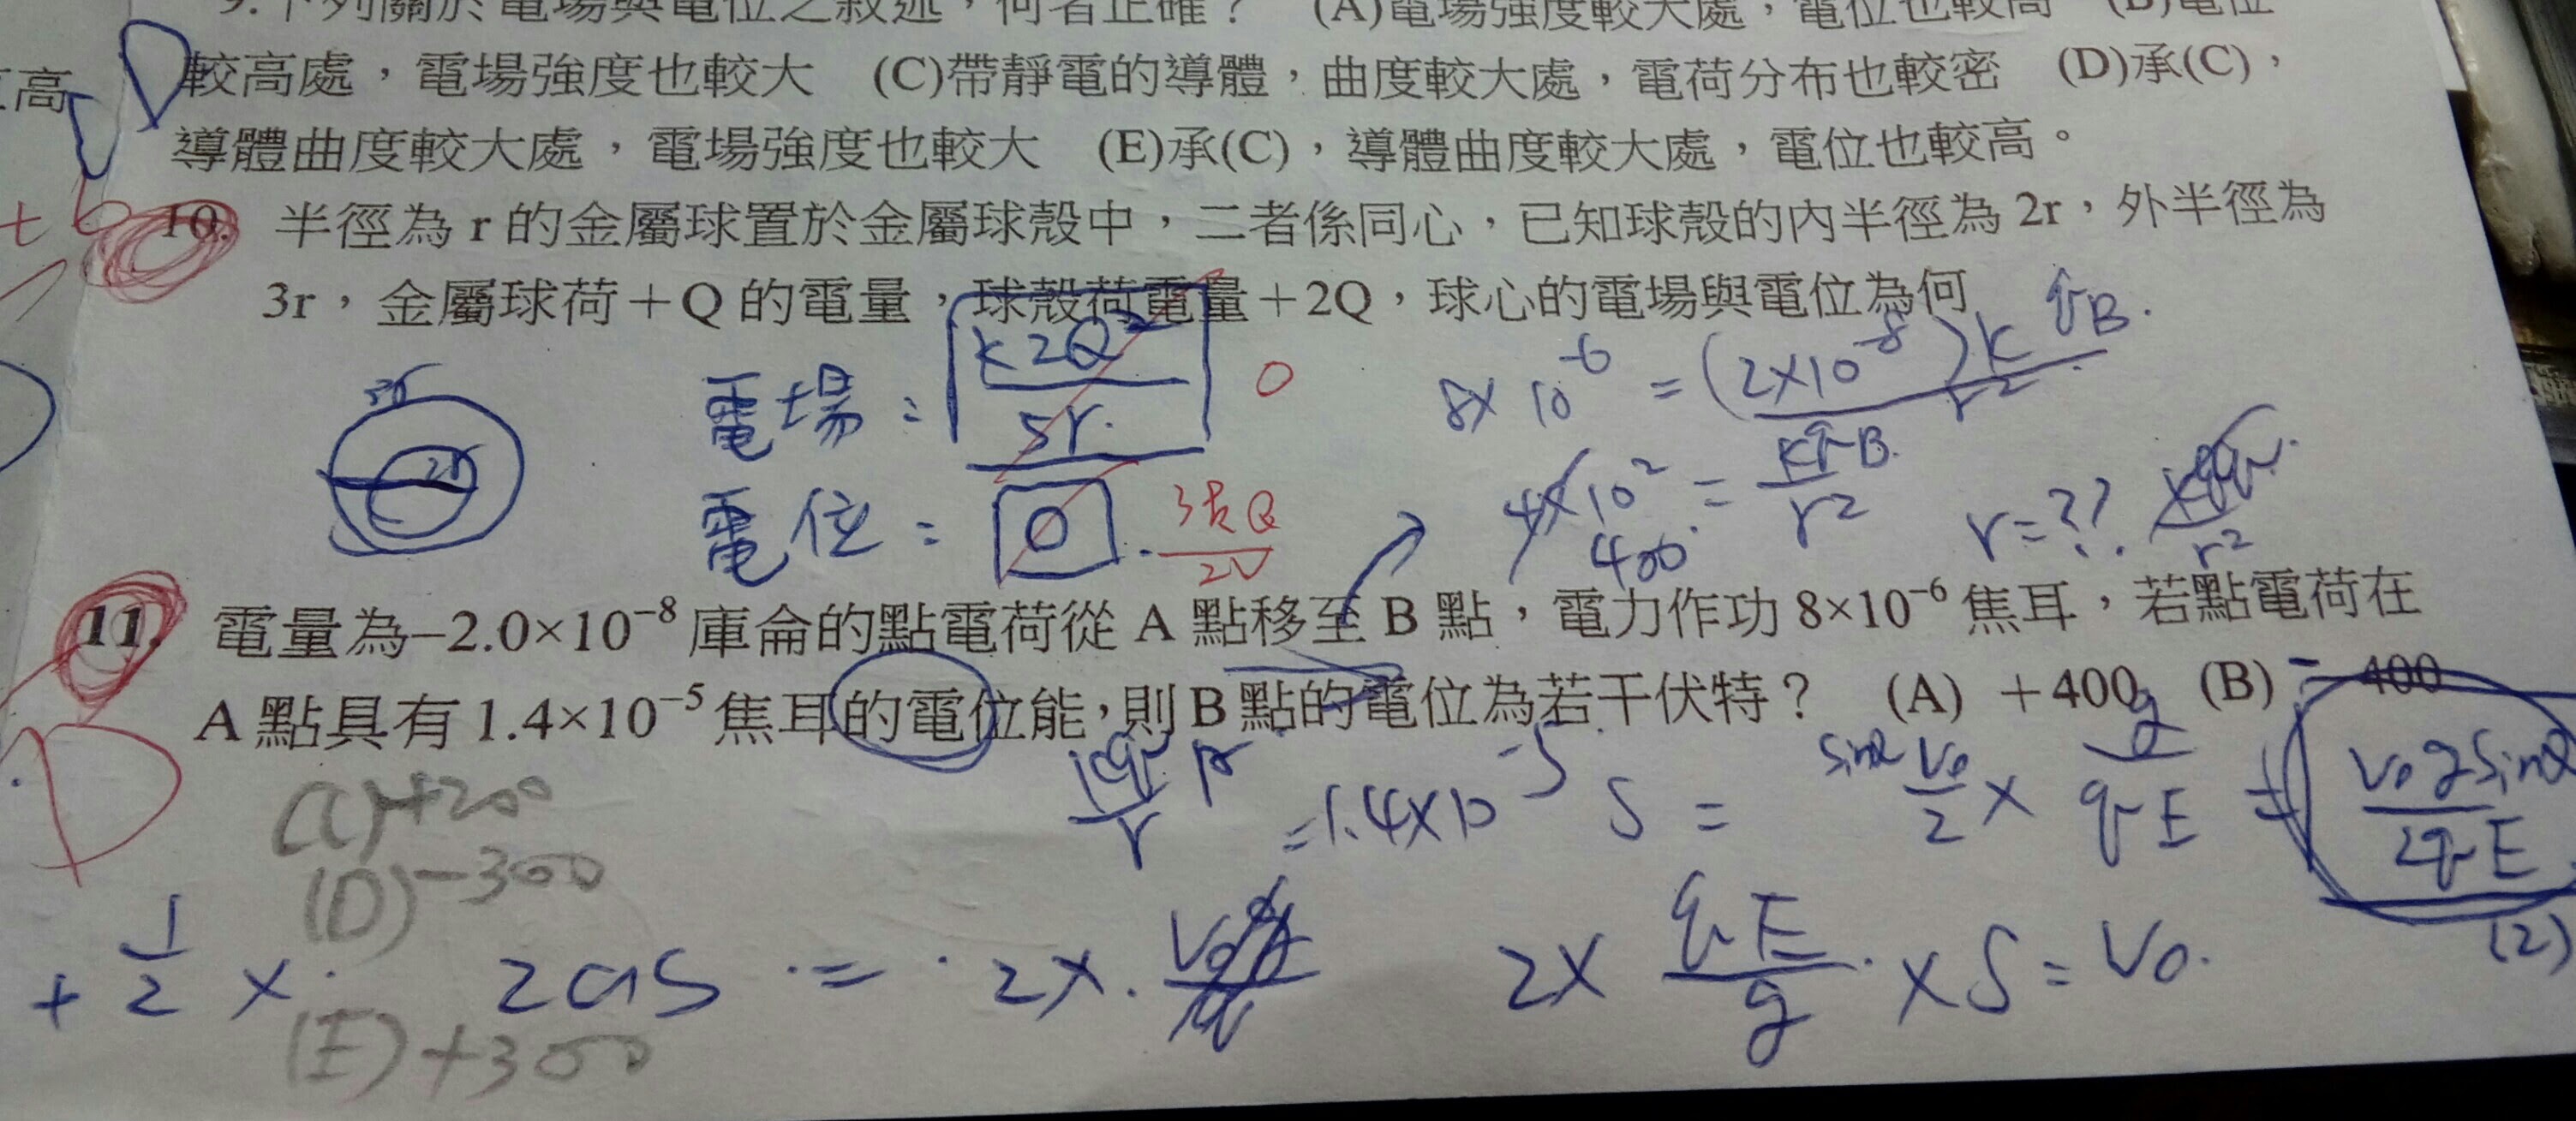 9.下列關於電場與電位之敘述，何者正確？ (A)電場強度較大處，電位也較高 (B)電位
較高處，電場強度也較大 (C)帶靜電的導體，曲度較大處，電荷分布也較密 (D)承(C)，
高
導體曲度較大處，電場強度也較大 (E)承(C)，導體曲度較大處，電位也較高。
10. 半徑為 r 的金屬球置於金屬球殼中，二者係同心，已知球殼的內半徑為 2r，外半徑為
3r，金屬球荷＋Q 的電量，球殼荷電量＋2Q，球心的電場與電位為何
電場：k2Q² / 5r. 0
8×10^-6 = (2×10^-8)k qB. / r²
電位：0 . 3kQ / 2r
4×10² = kqB / r²
400
r=??
r²
11. 電量為–2.0×10⁻⁸ 庫侖的點電荷從 A 點移至 B 點，電力作功 8×10⁻⁶ 焦耳，若點電荷在
A 點具有 1.4×10⁻⁵ 焦耳的電位能，則 B 點的電位為若干伏特？ (A) ＋400 (B) －400
D
(C)+200
=1.4×10^-5
S = sinα V₀/2 × g/qE = V₀gsinα / 2qE
(D)-300
+ 1/2 × 2as = 2×.
2× qE/g × S = V₀.
(2)
(E)+300